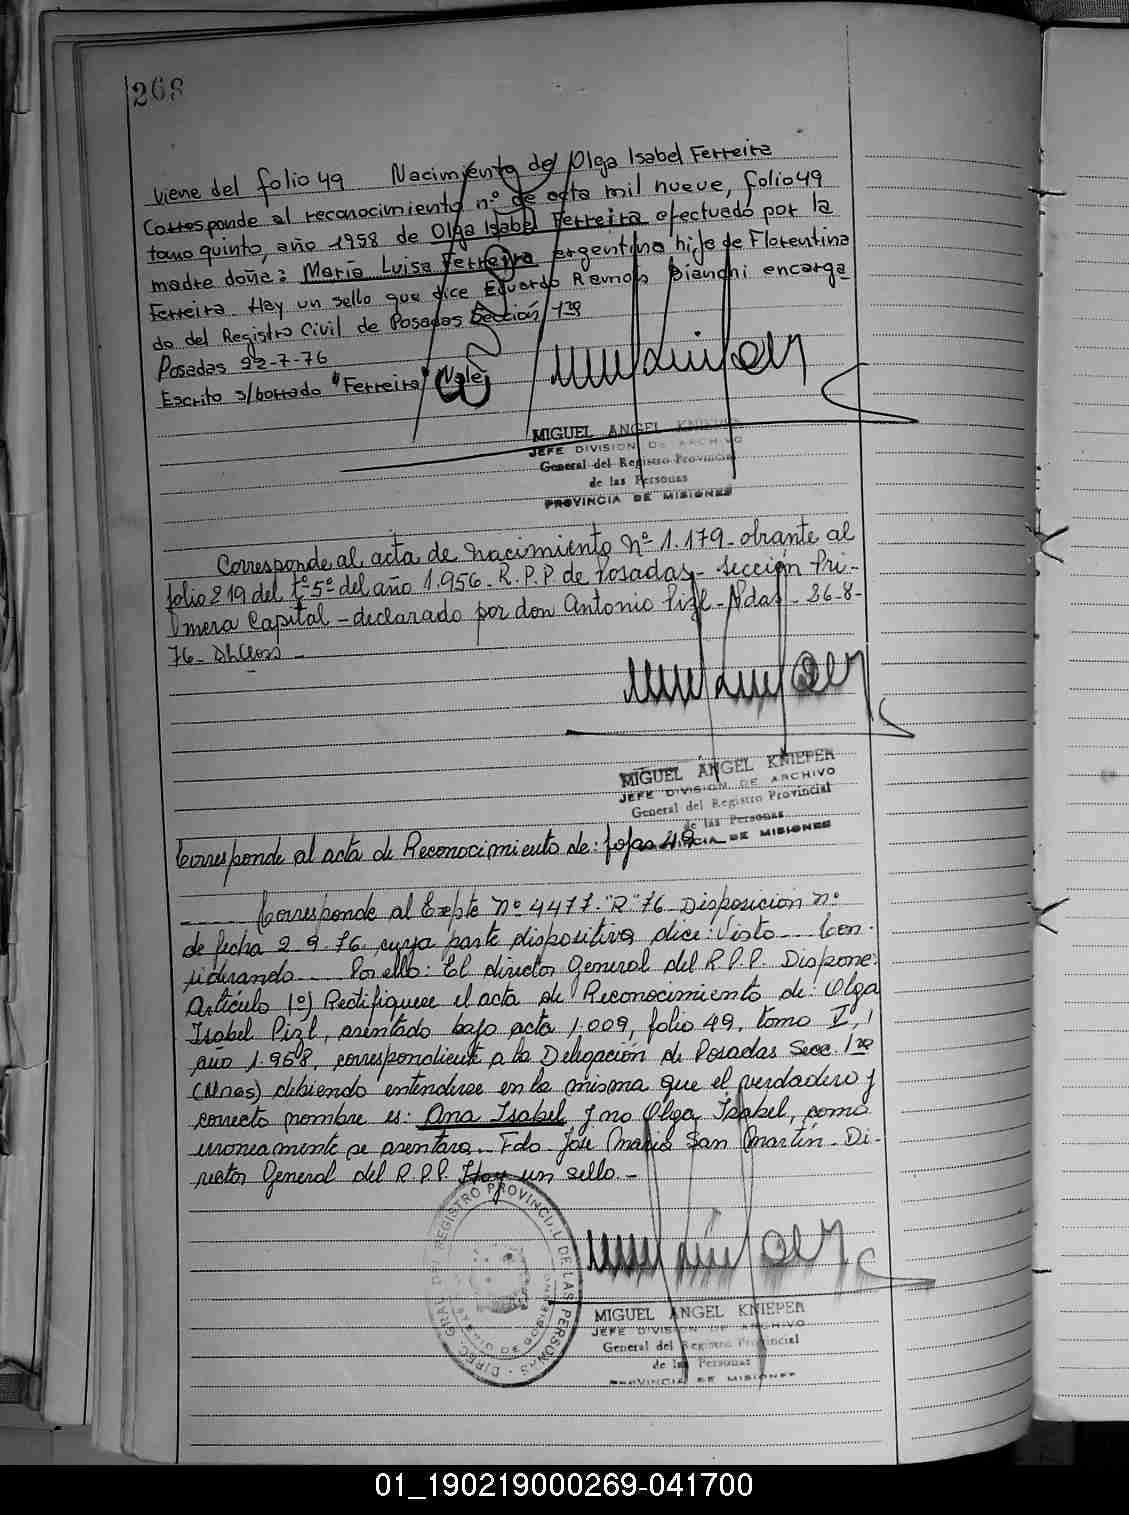 268
Viene del folio 49 Nacimiento de Olga Isabel Ferreira
Corresponde al reconocimiento n.º de acta mil nueve, folio 49
tomo quinto, año 1958 de Olga Isabel Ferreira efectuado por la
madre doña: María Luisa Ferreira argentina hija de Florentina
Ferreira. Hay un sello que dice Eduardo Ramón Bianchi encarga
do del Registro Civil de Posadas Sección 1ra
Posadas 22-7-76
Escrito s/borrado "Ferreira" Vale
MIGUEL ANGEL KNIEPER
JEFE DIVISION DE ARCHIVO
General del Registro Provincial
de las Personas
PROVINCIA DE MISIONES
Corresponde al acta de nacimiento nº 1.179- obrante al
folio 219 del tº-5º del año 1.956- R.P.P. de Posadas- Sección Pri-
mera Capital - declarado por don Antonio Pizl - Pdas - 26-8-
76-
MIGUEL ÁNGEL KNIEPER
JEFE DIVISION DE ARCHIVO
General del Registro Provincial
de las Personas
PROVINCIA DE MISIONES
Corresponde al acta de Reconocimiento de: fojas 49
Corresponde al Expte Nº 4477-"R"-76 Disposición nº
de fecha 2-9-76, cuya parte dispositiva dice: Visto... Con-
siderando... Por ello: El director General del R.P.P. Dispone:
Artículo 1º) Rectifíquese el acta de Reconocimiento de: Olga
Isabel Pizl, asentado bajo acta 1.009, folio 49, tomo V,
año 1.958, correspondiente a la Delegación de Posadas Secc. 1ra
(Mnes) debiendo entenderse en la misma que el verdadero y
correcto nombre es: Ana Isabel y no Olga Isabel, como
erroneamente se asentara. Fdo. José María San Martín - Di-
rector General del R.P.P. Hay un sello.-
DIREC. GRAL. DEL REGISTRO PROVINCIAL DE LAS PERSONAS
MIGUEL ANGEL KNIEPER
JEFE DIVISION DE ARCHIVO
General del Registro Provincial
de las Personas
PROVINCIA DE MISIONES
01_190219000269-041700